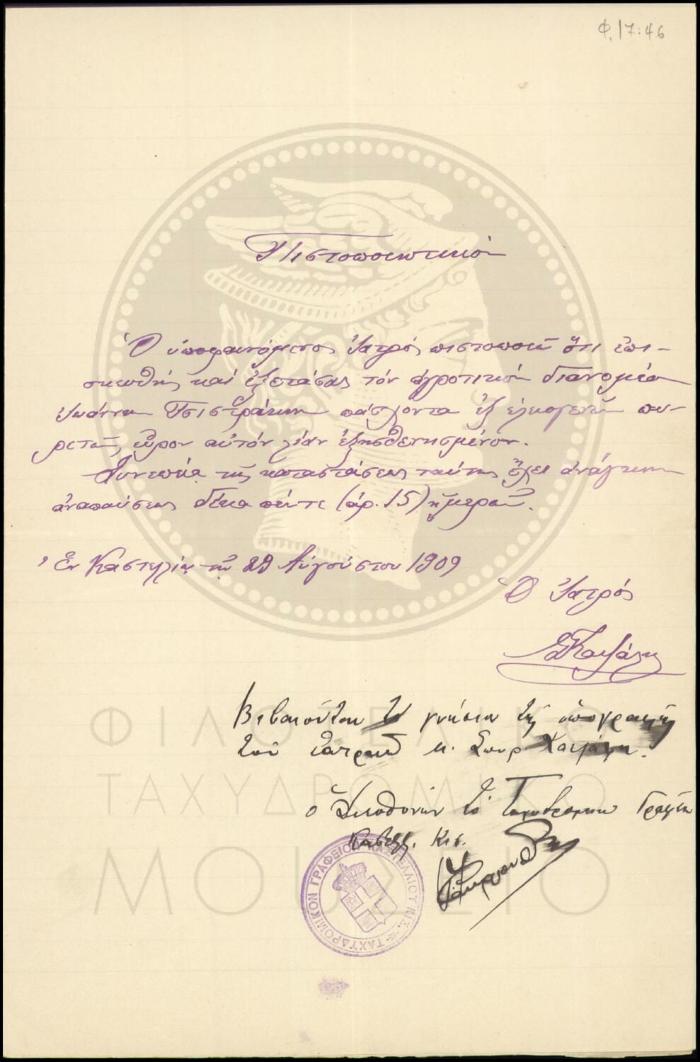 Φ. 17:46
Πιστοποιητικόν
Ὁ ὑποφαινόμενος Ἰατρός πιστοποιῶ ὅτι ἐπι-
σκεφθείς καί ἐξετάσας τόν ἀγροτικόν διανομέα
Ἰωάννην πάσχοντα ἐξ ἑλκογενῶν πυ-
ρετῶν, εὗρον αὐτόν λίαν ἐξησθενημένον.
Συνεπείᾳ τῆς καταστάσεως ταύτης ἔχει ἀνάγκην
ἀναπαύσεως δέκα πέντε (ἀρ. 15) ἡμερῶν.
Ἐν Καστελίῳ τῇ 29 Αὐγούστου 1909
Ὁ Ἰατρός
Βεβαιοῦται τὸ γνήσιον τῆς ὑπογραφῆς
τοῦ ἰατροῦ κ.
Ὁ Διευθύνων τὸ Ταχυδρομικὸν Γραφεῖον
Καστελλ. Κισ.
ΤΑΧΥΔΡΟΜΙΚΟΝ ΓΡΑΦΕΙΟΝ ΚΑΣΤΕΛΛΙΟΥ
ΦΙΛΟΤΕΛΙΚΟ
ΤΑΧΥΔΡΟΜΙΚΟ
ΜΟΥΣΕΙΟ